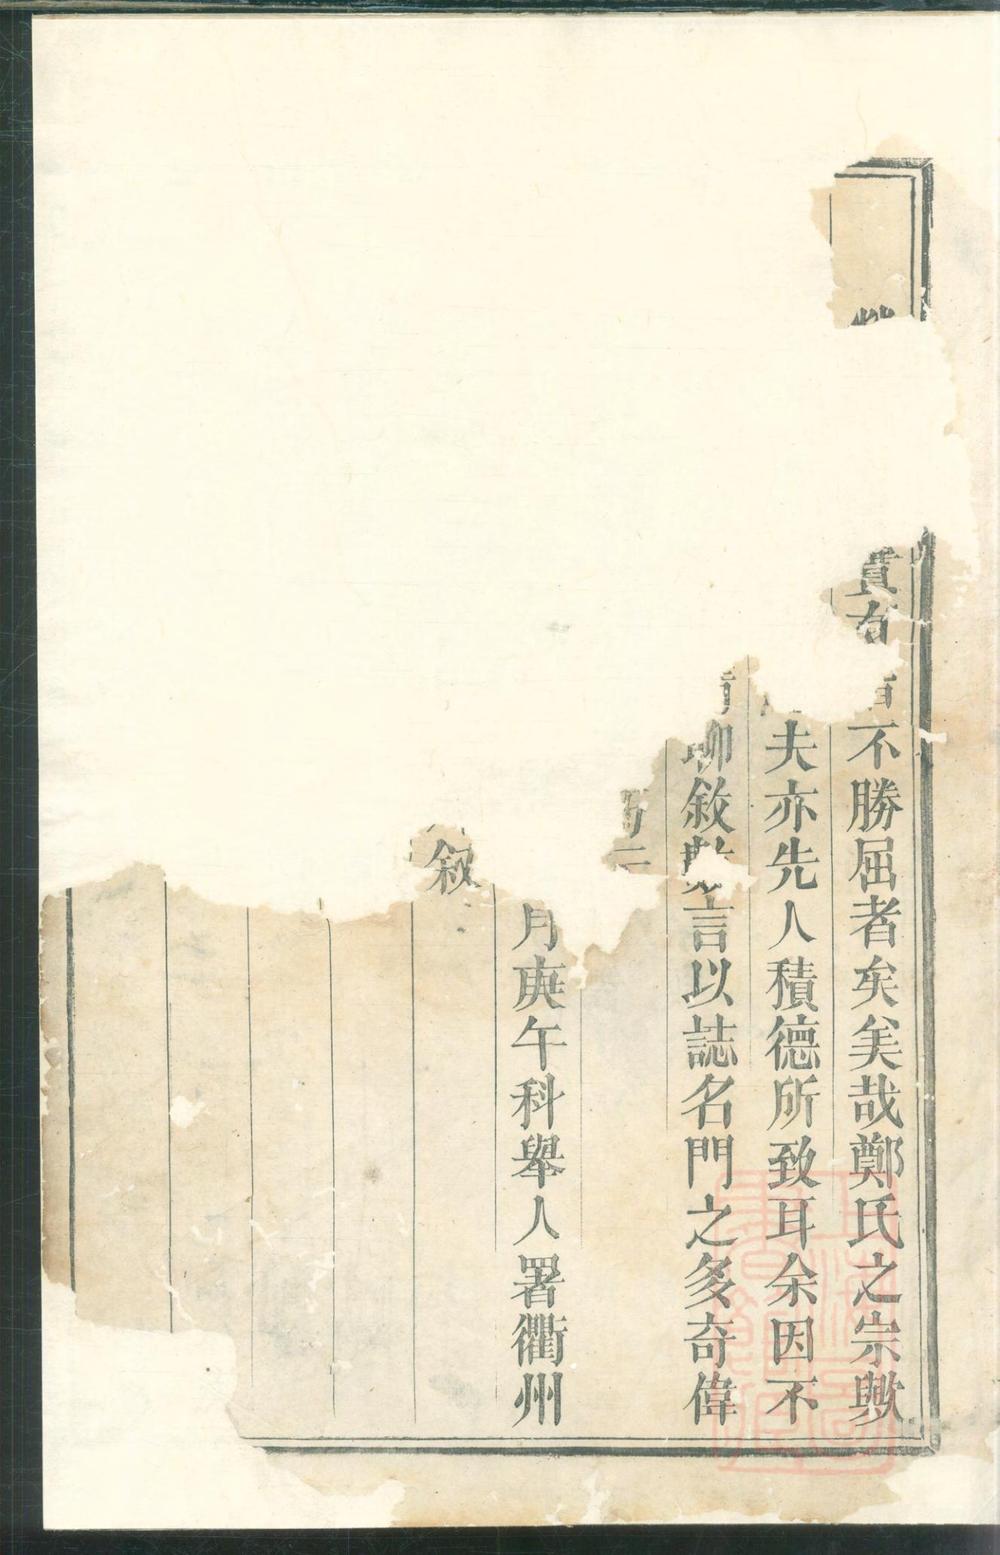 貴有
不勝屈者矣美哉鄭氏之宗歟
夫亦先人積德所致耳余因不
聊敘數言以誌名門之多奇偉
月庚午科舉人署衢州
敘